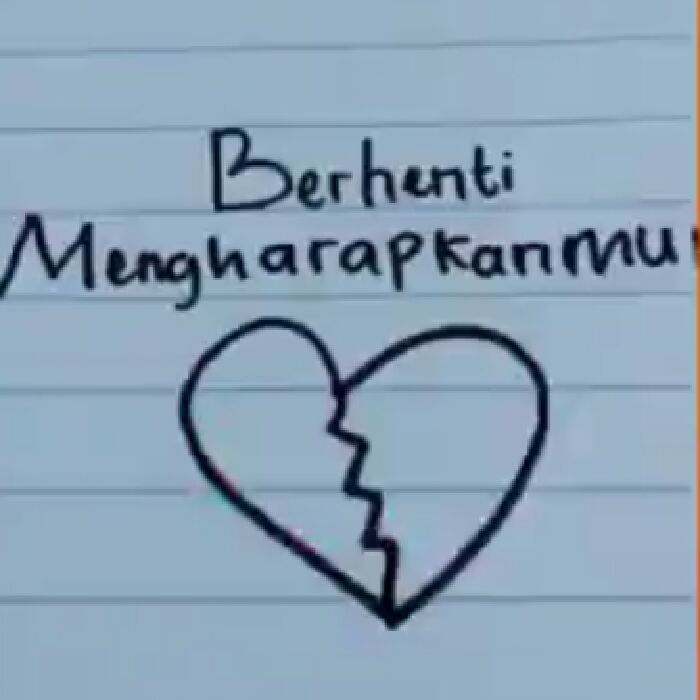 Berhenti
Mengharapkanmu